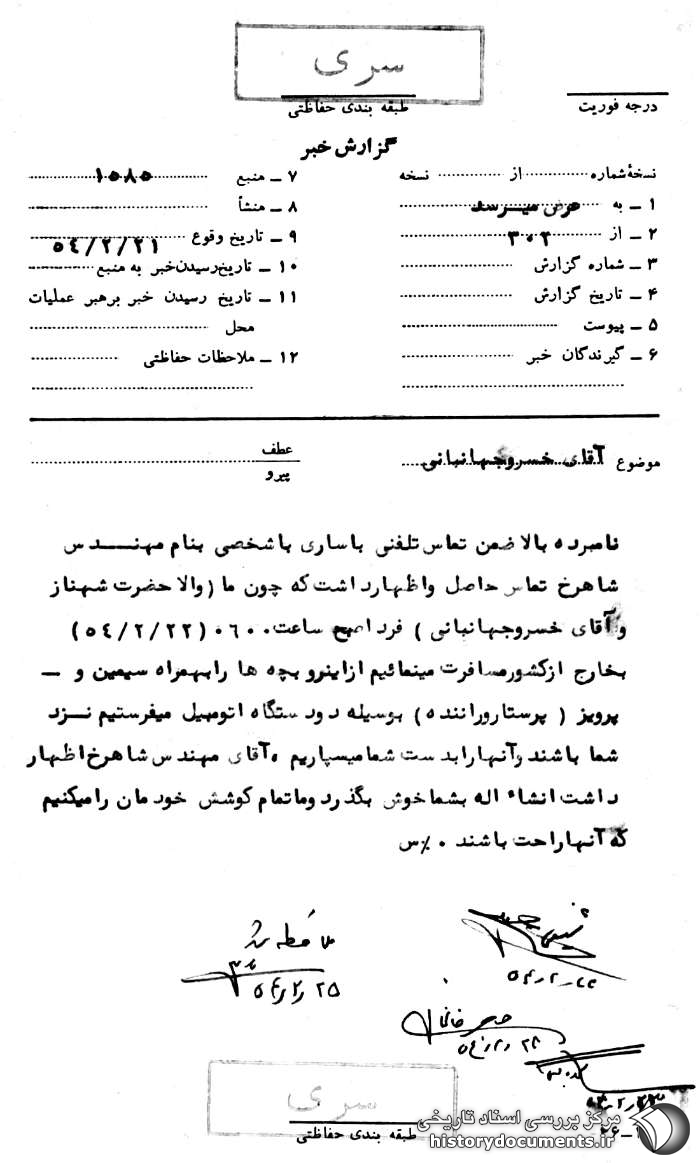 سری
طبقه بندی حفاظتی
درجه فوریت
گزارش خبر
نسخهٔ شماره از نسخه
۱ ـ به عرض میرسد
۲ ـ از ۳۰۲
۳ ـ شماره گزارش
۴ ـ تاریخ گزارش
۵ ـ پیوست
۶ ـ گیرندگان خبر
۷ ـ منبع ۱۵۸۵
۸ ـ منشأ
۹ ـ تاریخ وقوع ۵٤/۲/۲۱
۱۰ ـ تاریخ رسیدن خبر به منبع
۱۱ ـ تاریخ رسیدن خبر برهبر عملیات
محل
۱۲ ـ ملاحظات حفاظتی
موضوع آقای خسروجهانبانی
عطف
پیرو
نامبرده بالا ضمن تماس تلفنی باساری با شخصی بنام مهندس
شاهرخ تماس حاصل و اظهارداشت که چون ما (والاحضرت شهناز
و آقای خسروجهانبانی ) فردا صبح ساعت ۰۶۰۰ (۵٤/۲/۲۲)
بخارج ازکشورمسافرت مینمائیم ازاینرو بچه ها رابهمراه سیمین و ـ
پرویز ( پرستارو راننده ) بوسیله دودستگاه اتومبیل میفرستیم نزد
شما باشند و آنهارا بدست شما میسپاریم ۰ آقای مهندس شاهرخ اظهار
داشت انشاء اله بشما خوش بگذرد وما تمام کوشش خودمان را میکنیم
که آنها راحت باشند ۰ ٪س
ملاحظه شد
۵۴٫۲٫۲۵
سری
طبقه بندی حفاظتی
مرکز بررسی اسناد تاریخی
historydocuments.ir